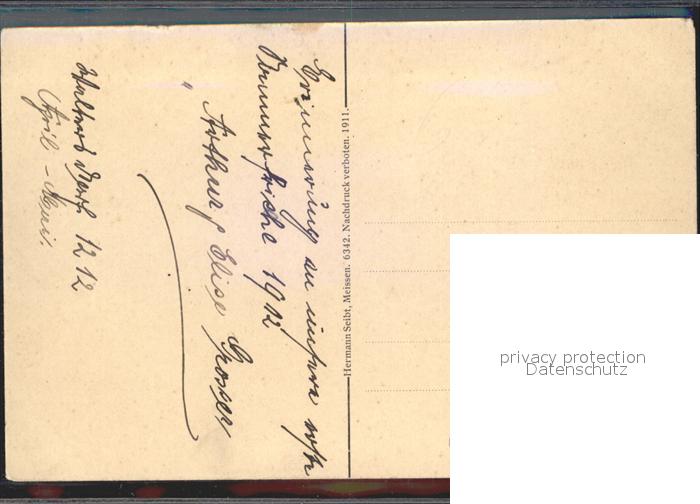 Erinnerung an unsere erste
Sommerfrische 1912
Arthur & Elise Grosser
April - Mai.
Hermann Seibt, Meissen. 6342. Nachdruck verboten. 1911.
privacy protection
Datenschutz